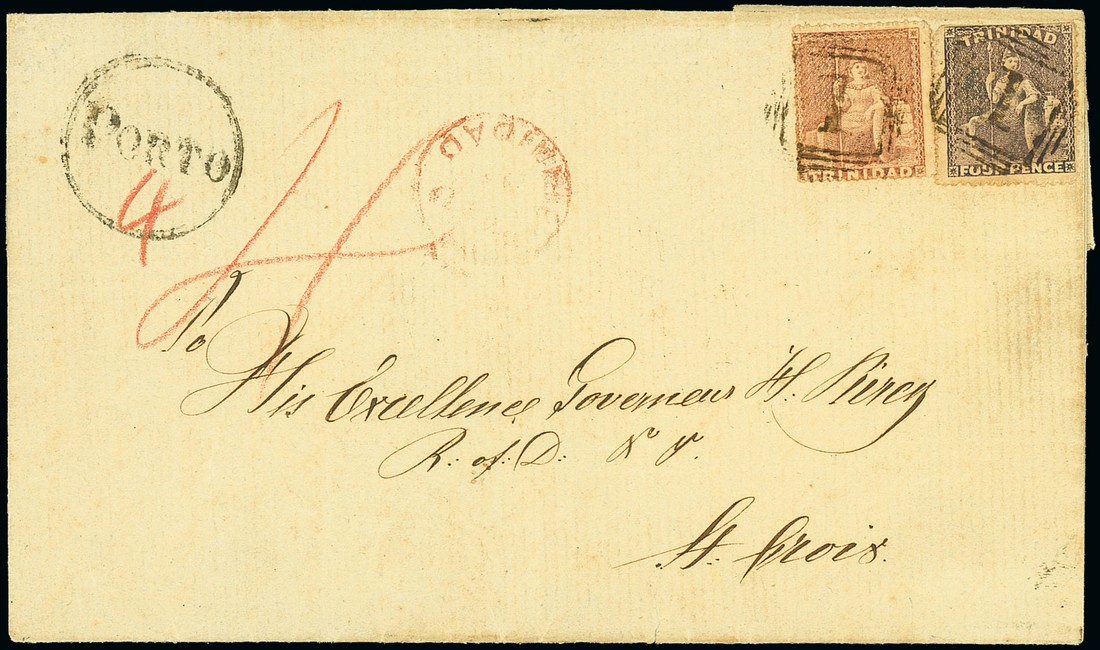 TRINIDAD
TRINIDAD
FOUR PENCE
1
1
PORTO
4
4
TRINIDAD
To
His Excellence Governeur H. Birch
R: of D: &c &c.
St. Croix.